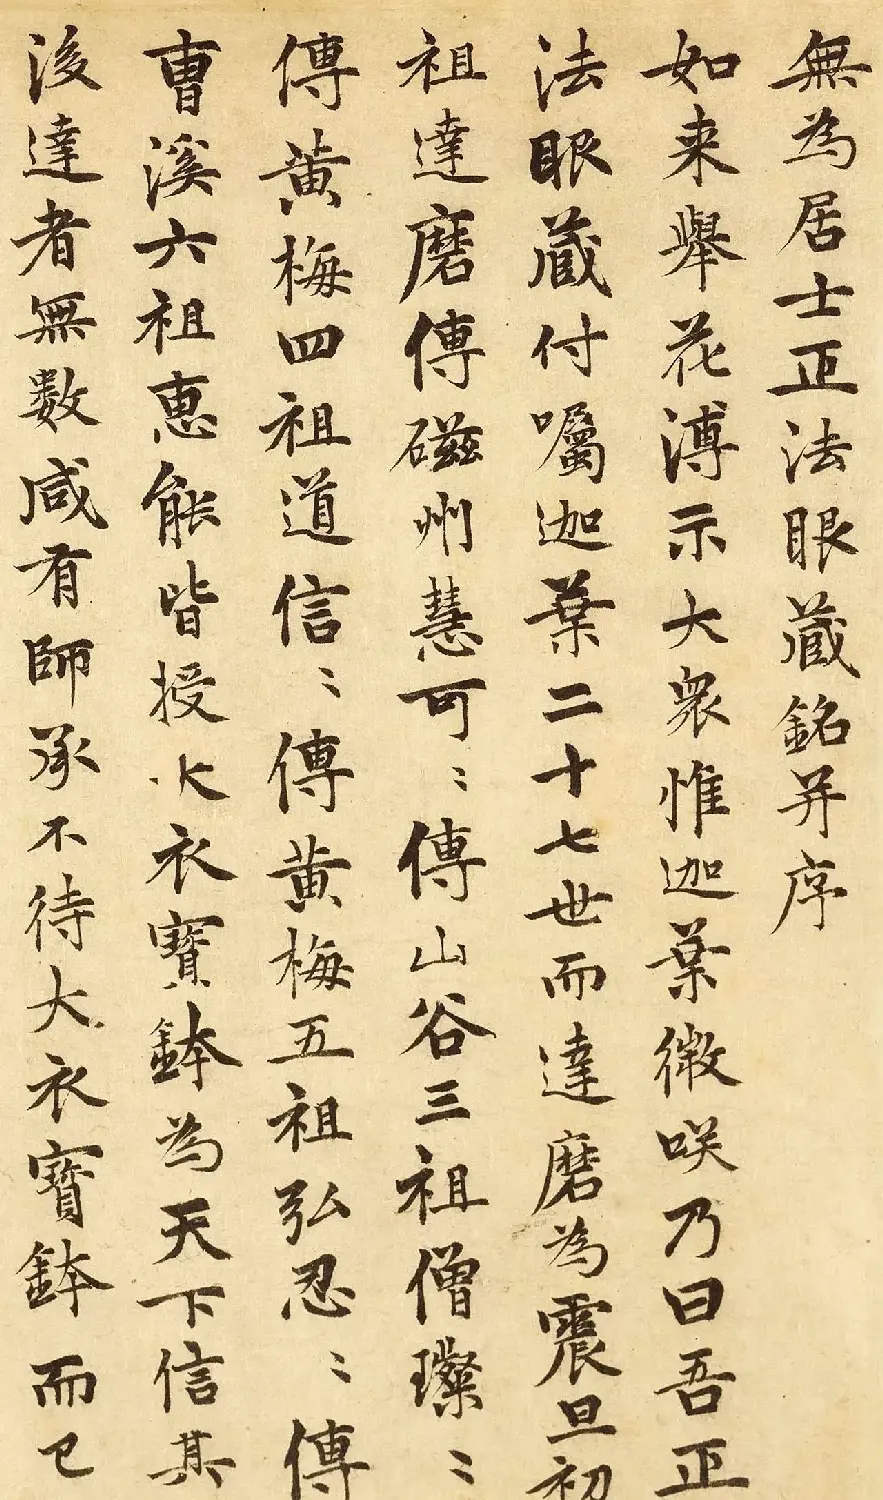 無為居士正法眼蔵銘并序
如来舉花溥示大衆惟迦葉微咲乃曰吾正
法眼蔵付囑迦葉二十七世而達磨為震旦初
祖達磨傳磁州慧可〻傳山谷三祖僧璨〻
傳黄梅四祖道信〻傳黄梅五祖弘忍〻傳
曺溪六祖恵能皆授大衣寶鉢為天下信其
後達者無数咸有師承不待大衣寶鉢而已